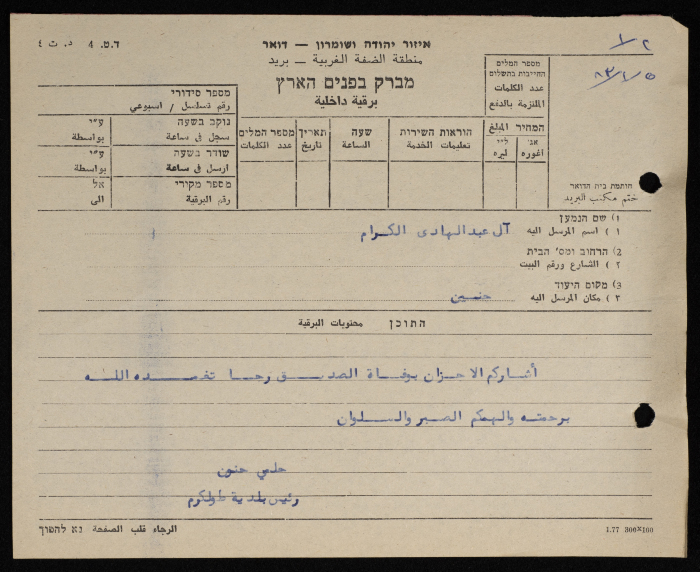 איזור יהודה ושומרון — דואר
ד.ט. 4 د. ت ٤
منطقة الضفة الغربية — بريد
מברק בפנים הארץ
برقية داخلية
١/٢
٨٣/١/٥
מספר המלים
החייבות בתשלום
عدد الكلمات
الملزمة بالدفع
המחיר المبلغ
אג׳ ל״י
اغوره ليره
חותמת בית הדואר
ختم مكتب البريد
הוראות השירות
تعليمات الخدمة
שעה
الساعة
תאריך
تاريخ
מספר המלים
عدد الكلمات
מספר סידורי
رقم تسلسل / اسبوعي
נוקב בשעה ע״י
سجل في ساعة بواسطة
שודר בשעה ע״י
ارسل في ساعة بواسطة
מספר מקורי אל
رقم البرقية الى
1) שם הנמען
١ ) اسم المرسل اليه آل عبد الهادي الكرام
2) הרחוב ומס׳ הבית
٢ ) الشارع ورقم البيت
3) מקום היעוד
٣ ) مكان المرسل اليه جنين
התוכן محتويات البرقية
أشارككم الاحزان بوفاة الصديق رحا تغمده الله
برحمته والهمكم الصبر والسلوان
حلمي حنون
رئيس بلدية طولكرم
الرجاء قلب الصفحة נא להפוך
1.77 300×160